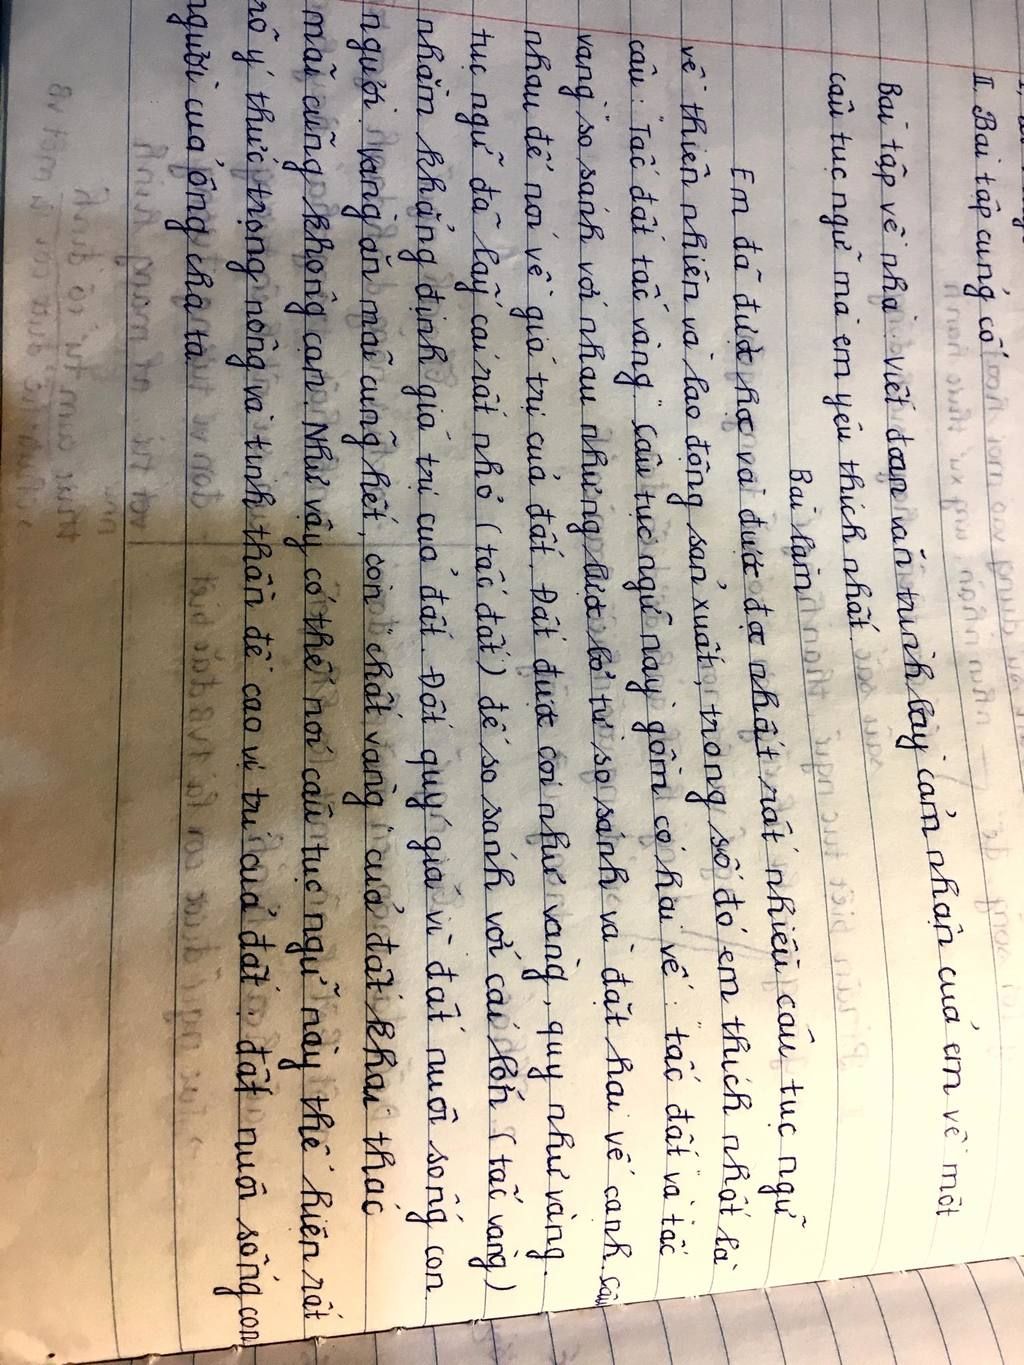 II. Bài tập củng cố
Bài tập về nhà: Viết đoạn văn trình bày cảm nhận của em về một
câu tục ngữ mà em yêu thích nhất.
Bài làm
Em đã được học và được đọc nhất rất nhiều câu tục ngữ
về thiên nhiên và lao động sản xuất, trong số đó em thích nhất là
câu: "Tấc đất tấc vàng". Câu tục ngữ này gồm có hai vế: "tấc đất và tấc
vàng" so sánh với nhau nhưng lược bỏ từ so sánh và đặt hai vế cạnh
nhau để nói về giá trị của đất. Đất được coi như vàng, quý như vàng. Câu
tục ngữ đã lấy cái rất nhỏ (tấc đất) để so sánh với cái lớn (tấc vàng)
nhằm khẳng định giá trị của đất. Đất quý giá vì đất nuôi sống con
người. Vàng ăn mãi cũng hết, còn "chất vàng" của đất khai thác
mãi cũng không cạn. Như vậy có thể nói câu tục ngữ này thể hiện rất
rõ ý thức trọng nông và tinh thần đề cao vị trí của đất, đất nuôi sống con
người của ông cha ta.